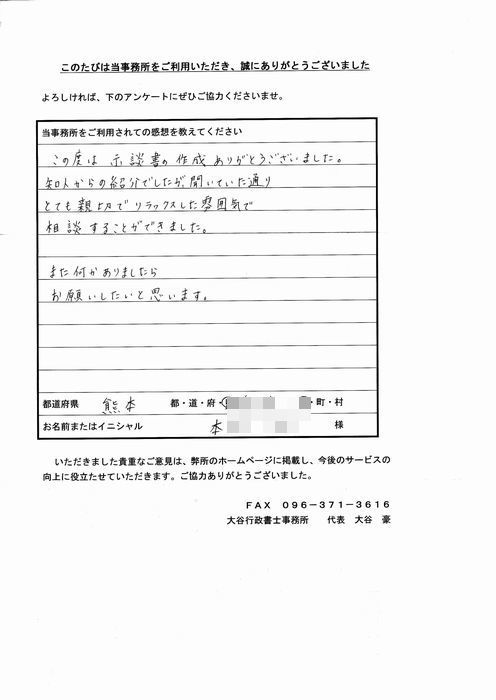 このたびは当事務所をご利用いただき、誠にありがとうございました
よろしければ、下のアンケートにぜひご協力くださいませ。
当事務所をご利用されての感想を教えてください
この度は 示談書の作成ありがとうございました。
知人からの紹介でしたが、聞いていた通り
とても親切でリラックスした雰囲気で
相談することができました。
また何かありましたら
お願いしたいと思います。
都道府県 熊本 都・道・府・ ・町・村
お名前またはイニシャル 本 様
いただきました貴重なご意見は、弊所のホームページに掲載し、今後のサービスの
向上に役立たせていただきます。ご協力ありがとうございました。
FAX 096-371-3616
大谷行政書士事務所 代表 大谷 豪